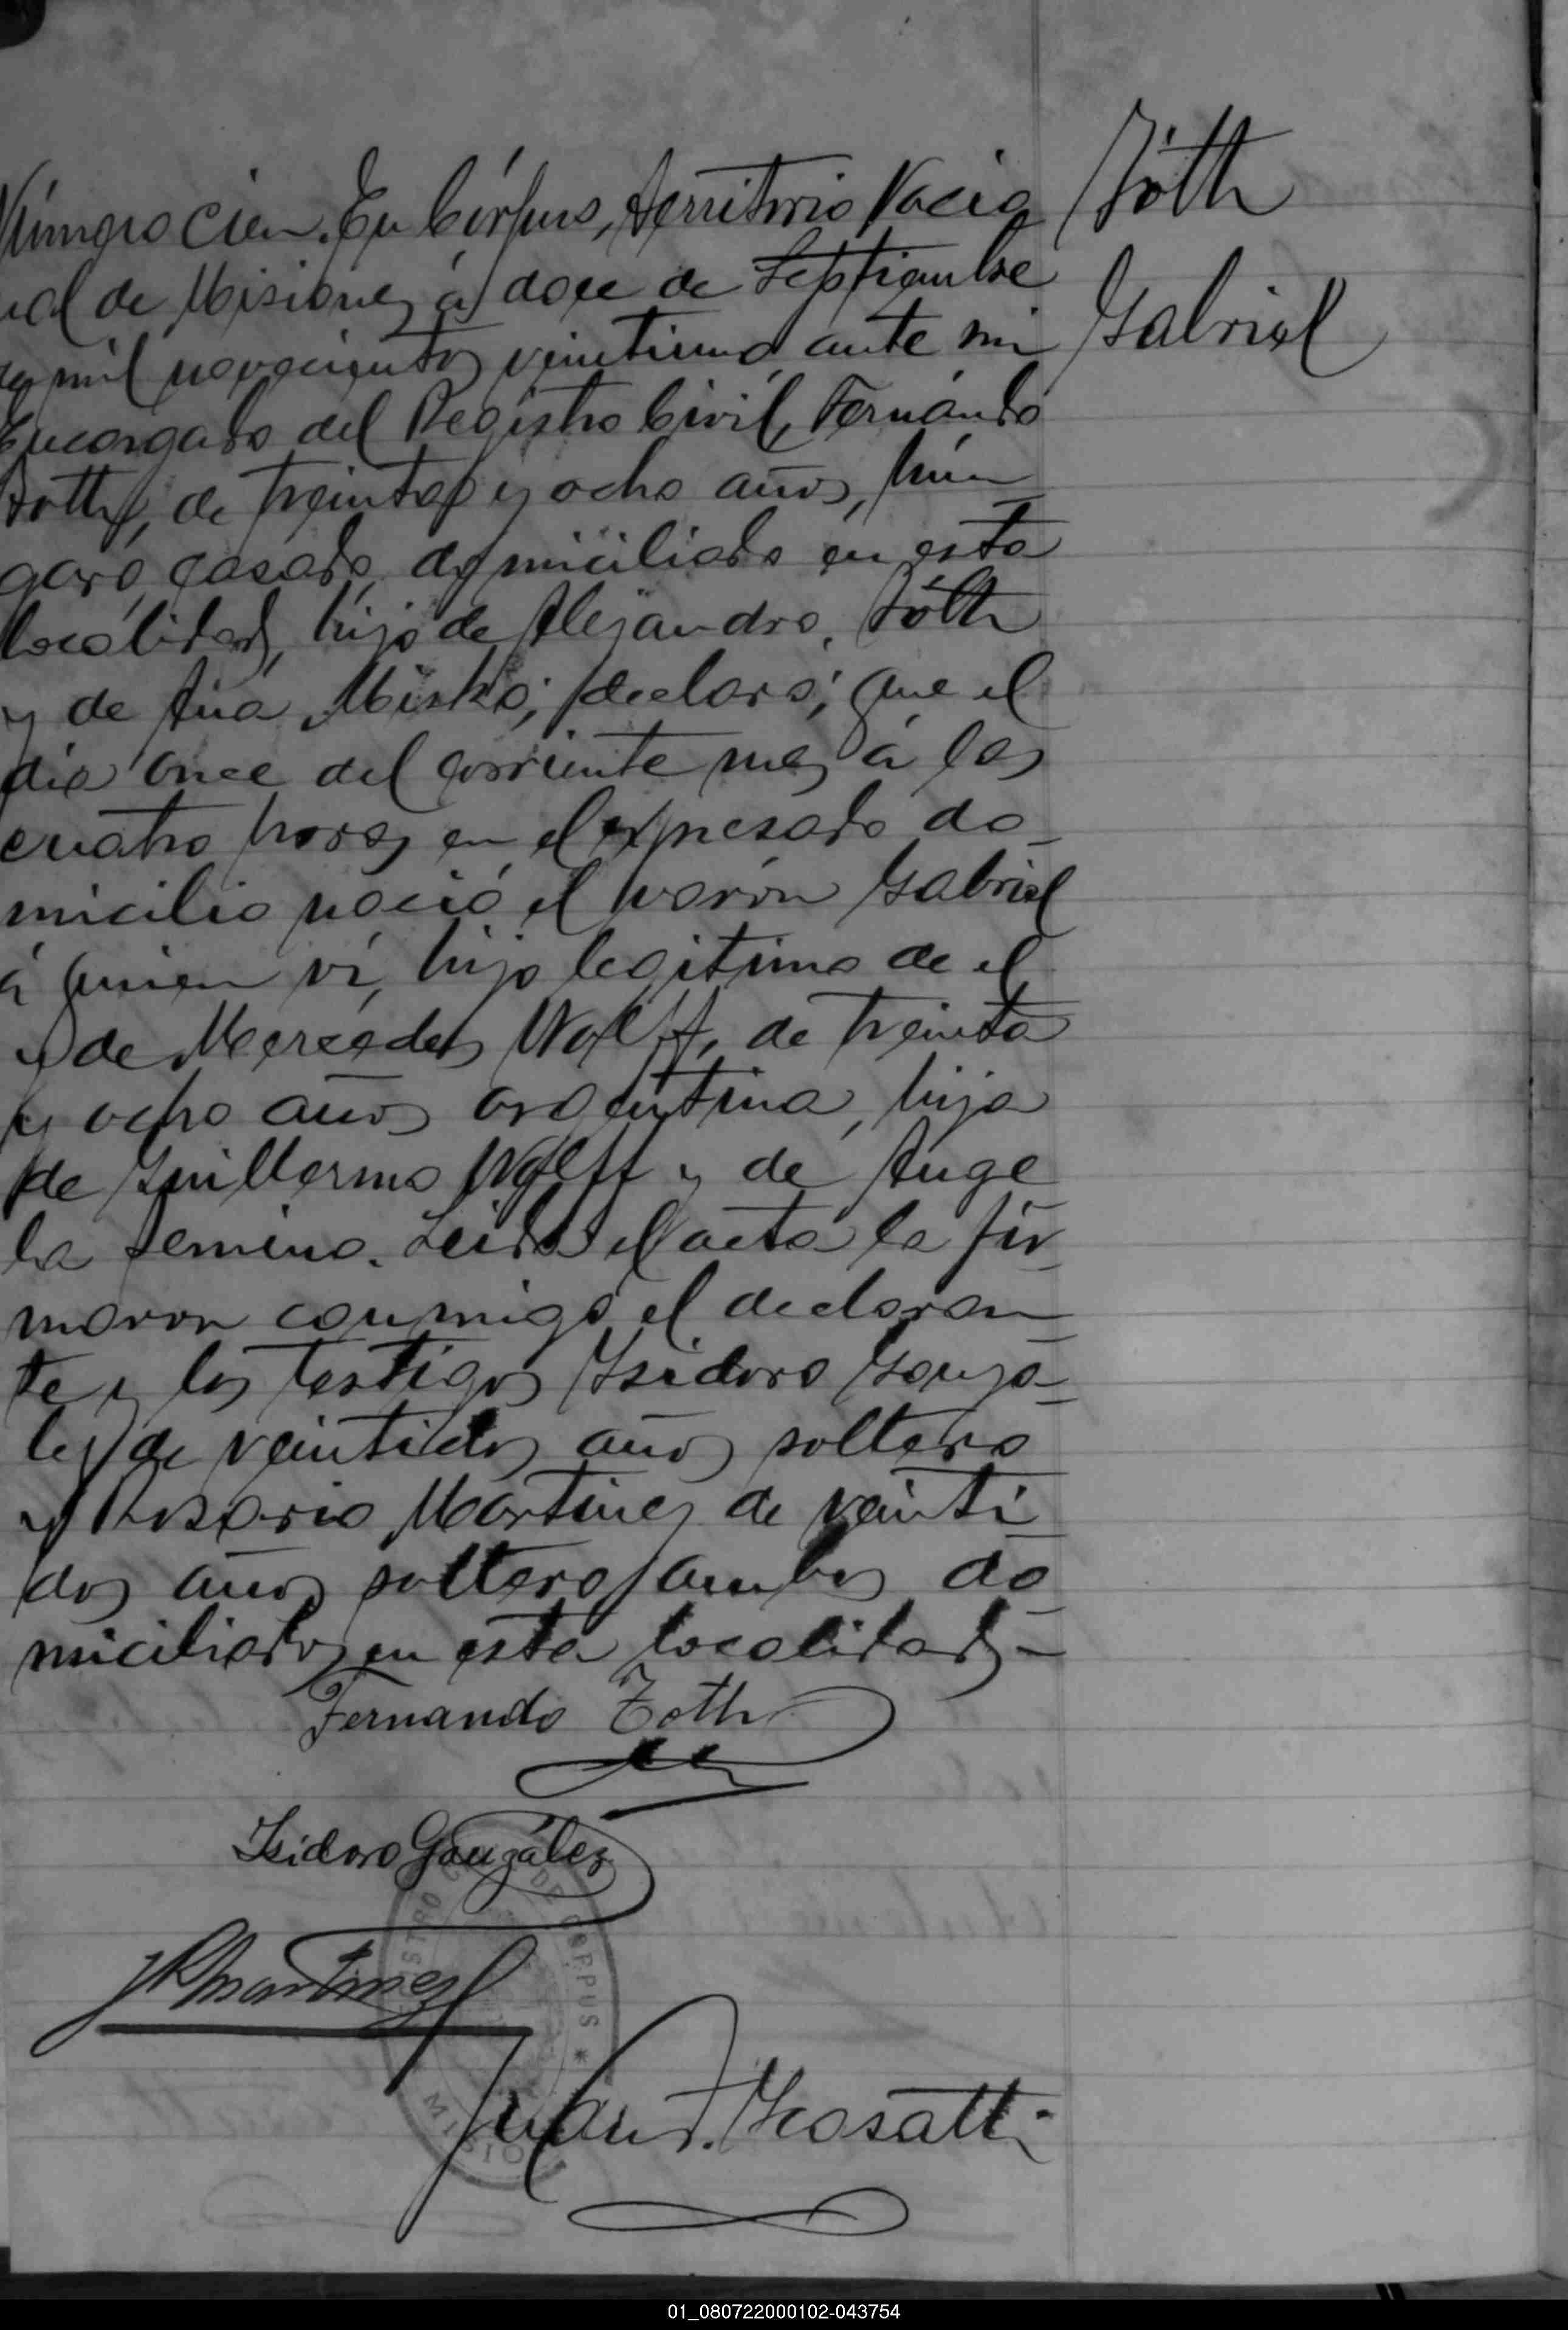 Tóth
Gabriel
Número Cien. En Córpus, territorio Nacio
nal de Misiones á doce de Septiembre
de mil novecientos veintiuno, ante mi
Encargado del Registro Civil, Fernándo
Totth, de treinta y ocho años, hún
garo, casado, domiciliado en esta
localidad, hijo de Alejandro Tóth
y de Ana Misko; declaró; que el
día once del corriente mes á las
cuatro horas en el expresado do
micilio nació el varón Gabriel
á quien ví, hijo legitimo de el
y de Mercedes Wolff, de treinta
y ocho años argentina, hija
de Guillermo Wolff y de Ange
la . Leida el acta la fir
maron conmigo el declaran
te y los testigos Isidoro Gonza
les de veintidos años soltero
y Rosario Martines de veinti
dos años soltero ambos do
miciliados en esta localidad –
Fernando Toth
Isidoro González
JRMartinez
REGISTRO CIVIL DE CORPUS * MISIONES
Juan
01_080722000102-043754